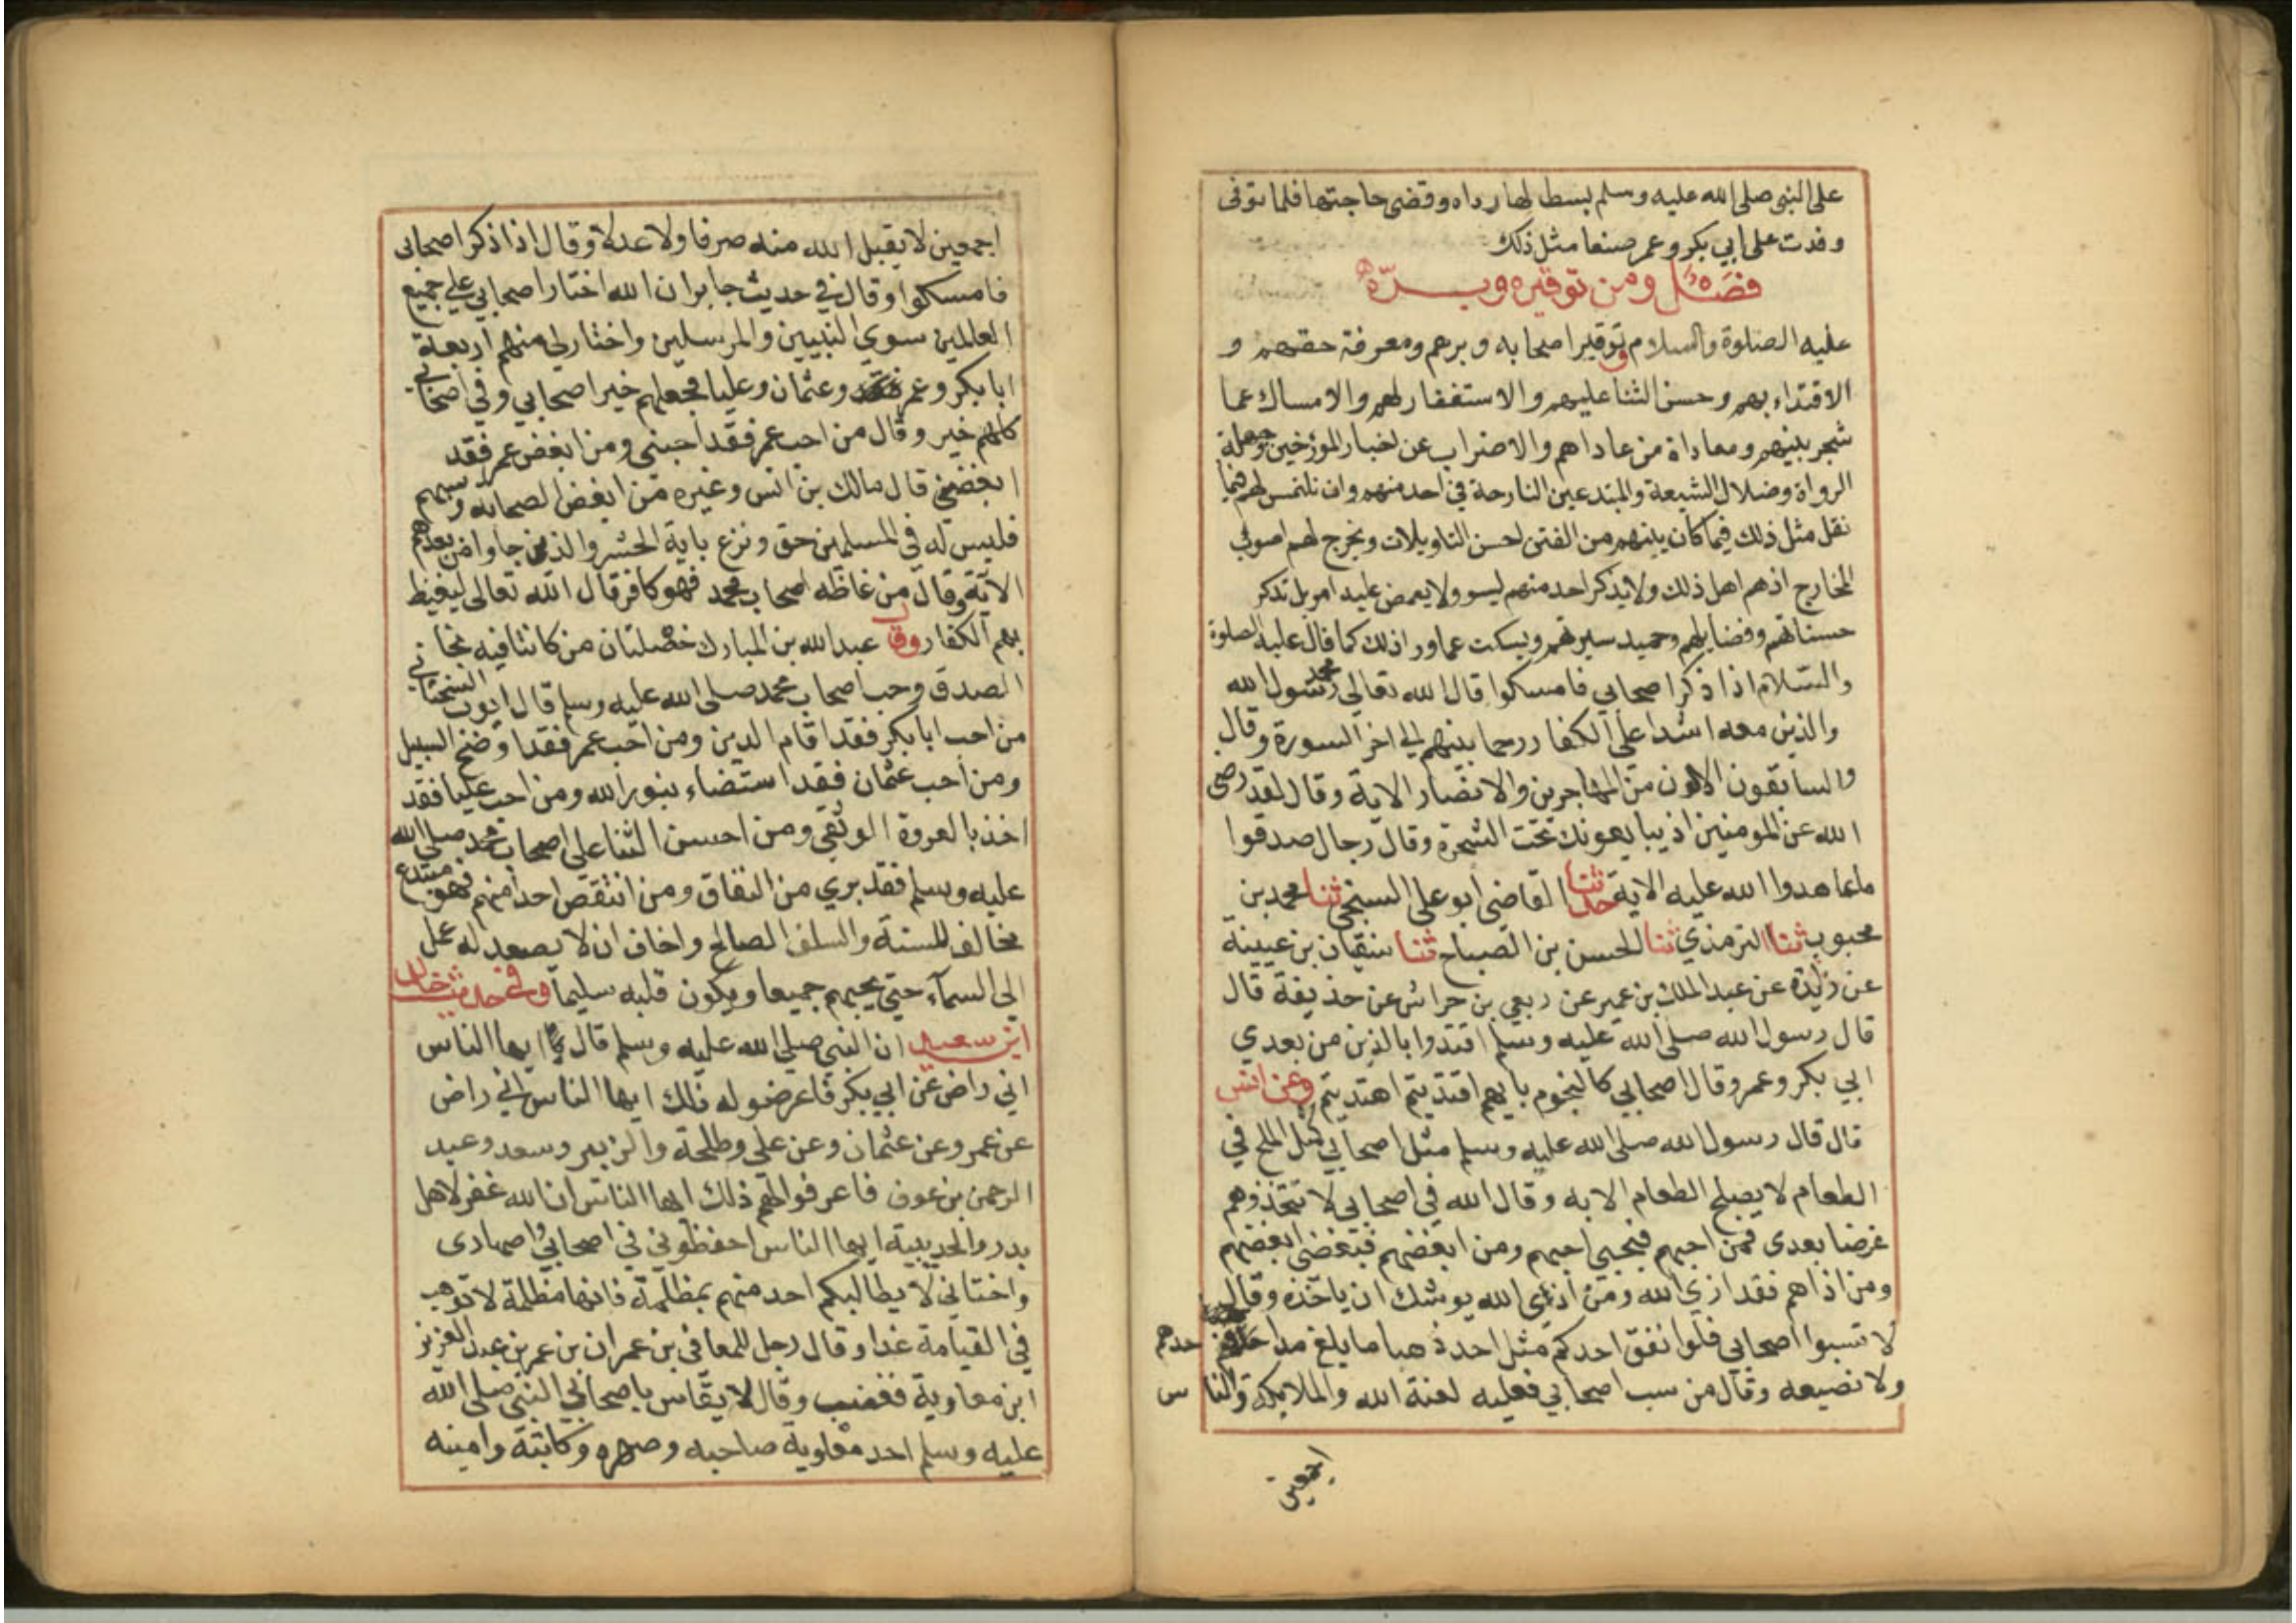 على النبي صلى الله عليه وسلم بسط لها رداه وقضى حاجتها فلما توفى
وفدت على ابي بكر وعمر صنعا مثل ذلك
فصل ومن توقيره وبره
عليه الصلوة والسلام توقير اصحابه وبرهم ومعرفة حقهم و
الاقتداء بهم وحسن الثنا عليهم والاستغفار لهم والامساك عما
شجر بينهم ومعاداة من عاداهم والاضراب عن اخبار المؤرخين وجهلة
الرواة وضلال الشيعة والمبتدعين القادحة في احد منهم وان نلتمس لهم فيما
نقل مثل ذلك فيما كان بينهم من الفتن احسن التاويلات ويخرج لهم اصوب
المخارج اذهم اهل ذلك ولا يذكر احد منهم ليسو ولا يغمض عليه امر بل تذكر
حسناتهم وفضايلهم وحميد سيرتهم ويسكت عما ورا ذلك كما قال عليه الصلوة
والسلام اذا ذكر اصحابي فامسكوا قال الله تعالى محمد رسول الله
والذين معه اشدا على الكفار رحما بينهم الى اخر السورة وقال
والسابقون الاولون من المهاجرين والانصار الاية وقال لقد رضى
الله عن المومنين اذ يبايعونك تحت الشجرة وقال رجال صدقوا
ما عاهدوا الله عليه الاية حدثنا القاضي ابو على السنجي ثنا محمد بن
محبوب ثنا الترمذي ثنا الحسن بن الصباح ثنا سفيان بن عيينة
عن زايدة عن عبد الملك بن عمير عن ربعي بن حراش عن حذيفة قال
قال رسول الله صلى الله عليه وسلم اقتدوا بالذين من بعدي
ابي بكر وعمر وقال اصحابي كالنجوم بايهم اقتديتم اهتديتم وعن انس
قال قال رسول الله صلى الله عليه وسلم مثل اصحابي كمثل الملح في
الطعام لا يصلح الطعام الا به وقال الله في اصحابي لا تتخذوهم
غرضا بعدى فمن احبهم فبحبي احبهم ومن ابغضهم فببغضي ابغضهم
ومن اذاهم فقد اذى الله ومن اذى الله يوشك ان ياخذه وقال
لا تسبوا اصحابي فلو انفق احدكم مثل احد ذهبا ما بلغ مد احدهم
ولا نصيفه وقال من سب اصحابي فعليه لعنة الله والملايكة والناس
اجمعين
اجمعين لا يقبل الله منه صرفا ولا عدلا وقال اذا ذكر اصحابى
فامسكوا وقال في حديث جابر ان الله اختار اصحابي على جميع
العالمين سوى النبيين والمرسلين واختار لي منهم اربعة
ابا بكر وعمر وعثمان وعليا فجعلهم خير اصحابي وفي اصحابي
كلهم خير وقال من احب عمر فقد احبني ومن ابغض عمر فقد
ابغضني قال مالك بن انس وغيره من ابغض الصحابة وسبهم
فليس له في المسلمين حق ونزع باية الحشر والذين جاوا من بعدهم
الاية وقال من غاظه اصحاب محمد فهو كافر قال الله تعالى ليغيظ
بهم الكفار وقال عبد الله بن المبارك خصلتان من كانتا فيه نجا
الصدق وحب اصحاب محمد صلى الله عليه وسلم قال ايوب السختياني
من احب ابا بكر فقد اقام الدين ومن احب عمر فقد اوضح السبيل
ومن احب عثمان فقد استضاء بنور الله ومن احب عليا فقد
اخذ بالعروة الوثقى ومن احسن الثنا على اصحاب محمد صلى الله
عليه وسلم فقد بري من النفاق ومن انتقص احدا منهم فهو مبتدع
مخالف للسنة والسلف الصالح واخاف ان لا يصعد له عمل
الى السمآء حتي يحبهم جميعا ويكون قلبه سليما وفي حديث خالد
ابن سعيد ان النبي صلى الله عليه وسلم قال يا ايها الناس
اني راض عن ابي بكر فاعرضوا له ذلك ايها الناس اني راض
عن عمر وعن عثمان وعن على وطلحة والزبير وسعد وعبد
الرحمن بن عوف فاعرفوا لهم ذلك ايها الناس ان الله غفر لاهل
بدر والحديبية ايها الناس احفظوني في اصحابي واصهارى
واختانى لا يطالبكم احد منهم بمظلمة فانها مظلمة لا توهب
في القيامة غدا وقال رجل للمعافى بن عمران بن عمر بن عبد العزيز
ابن معاوية فغضب وقال لا يقاس باصحابي النبي صلى الله
عليه وسلم احد معاوية صاحبه وصهره وكاتبه وامينه